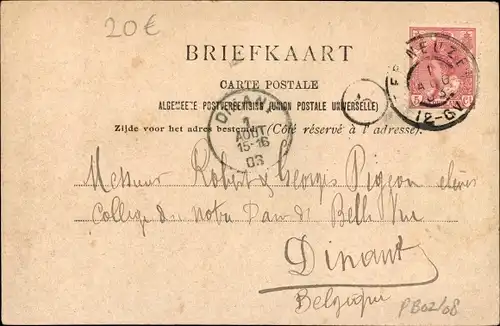 20€
BRIEFKAART
CARTE POSTALE
ALGEMEENE POSTVEREENIGING (UNION POSTALE UNIVERSELLE)
Zijde voor het adres bestemd. (Côté réservé à l'adresse).
NEUZEN
12-6V
DINANT
1
AOUT
15-16
03
Messieurs Robert & Georges Pigeon elèves
College du Notre Dam de Belle Vue
Dinant
Belgique
PB02/08